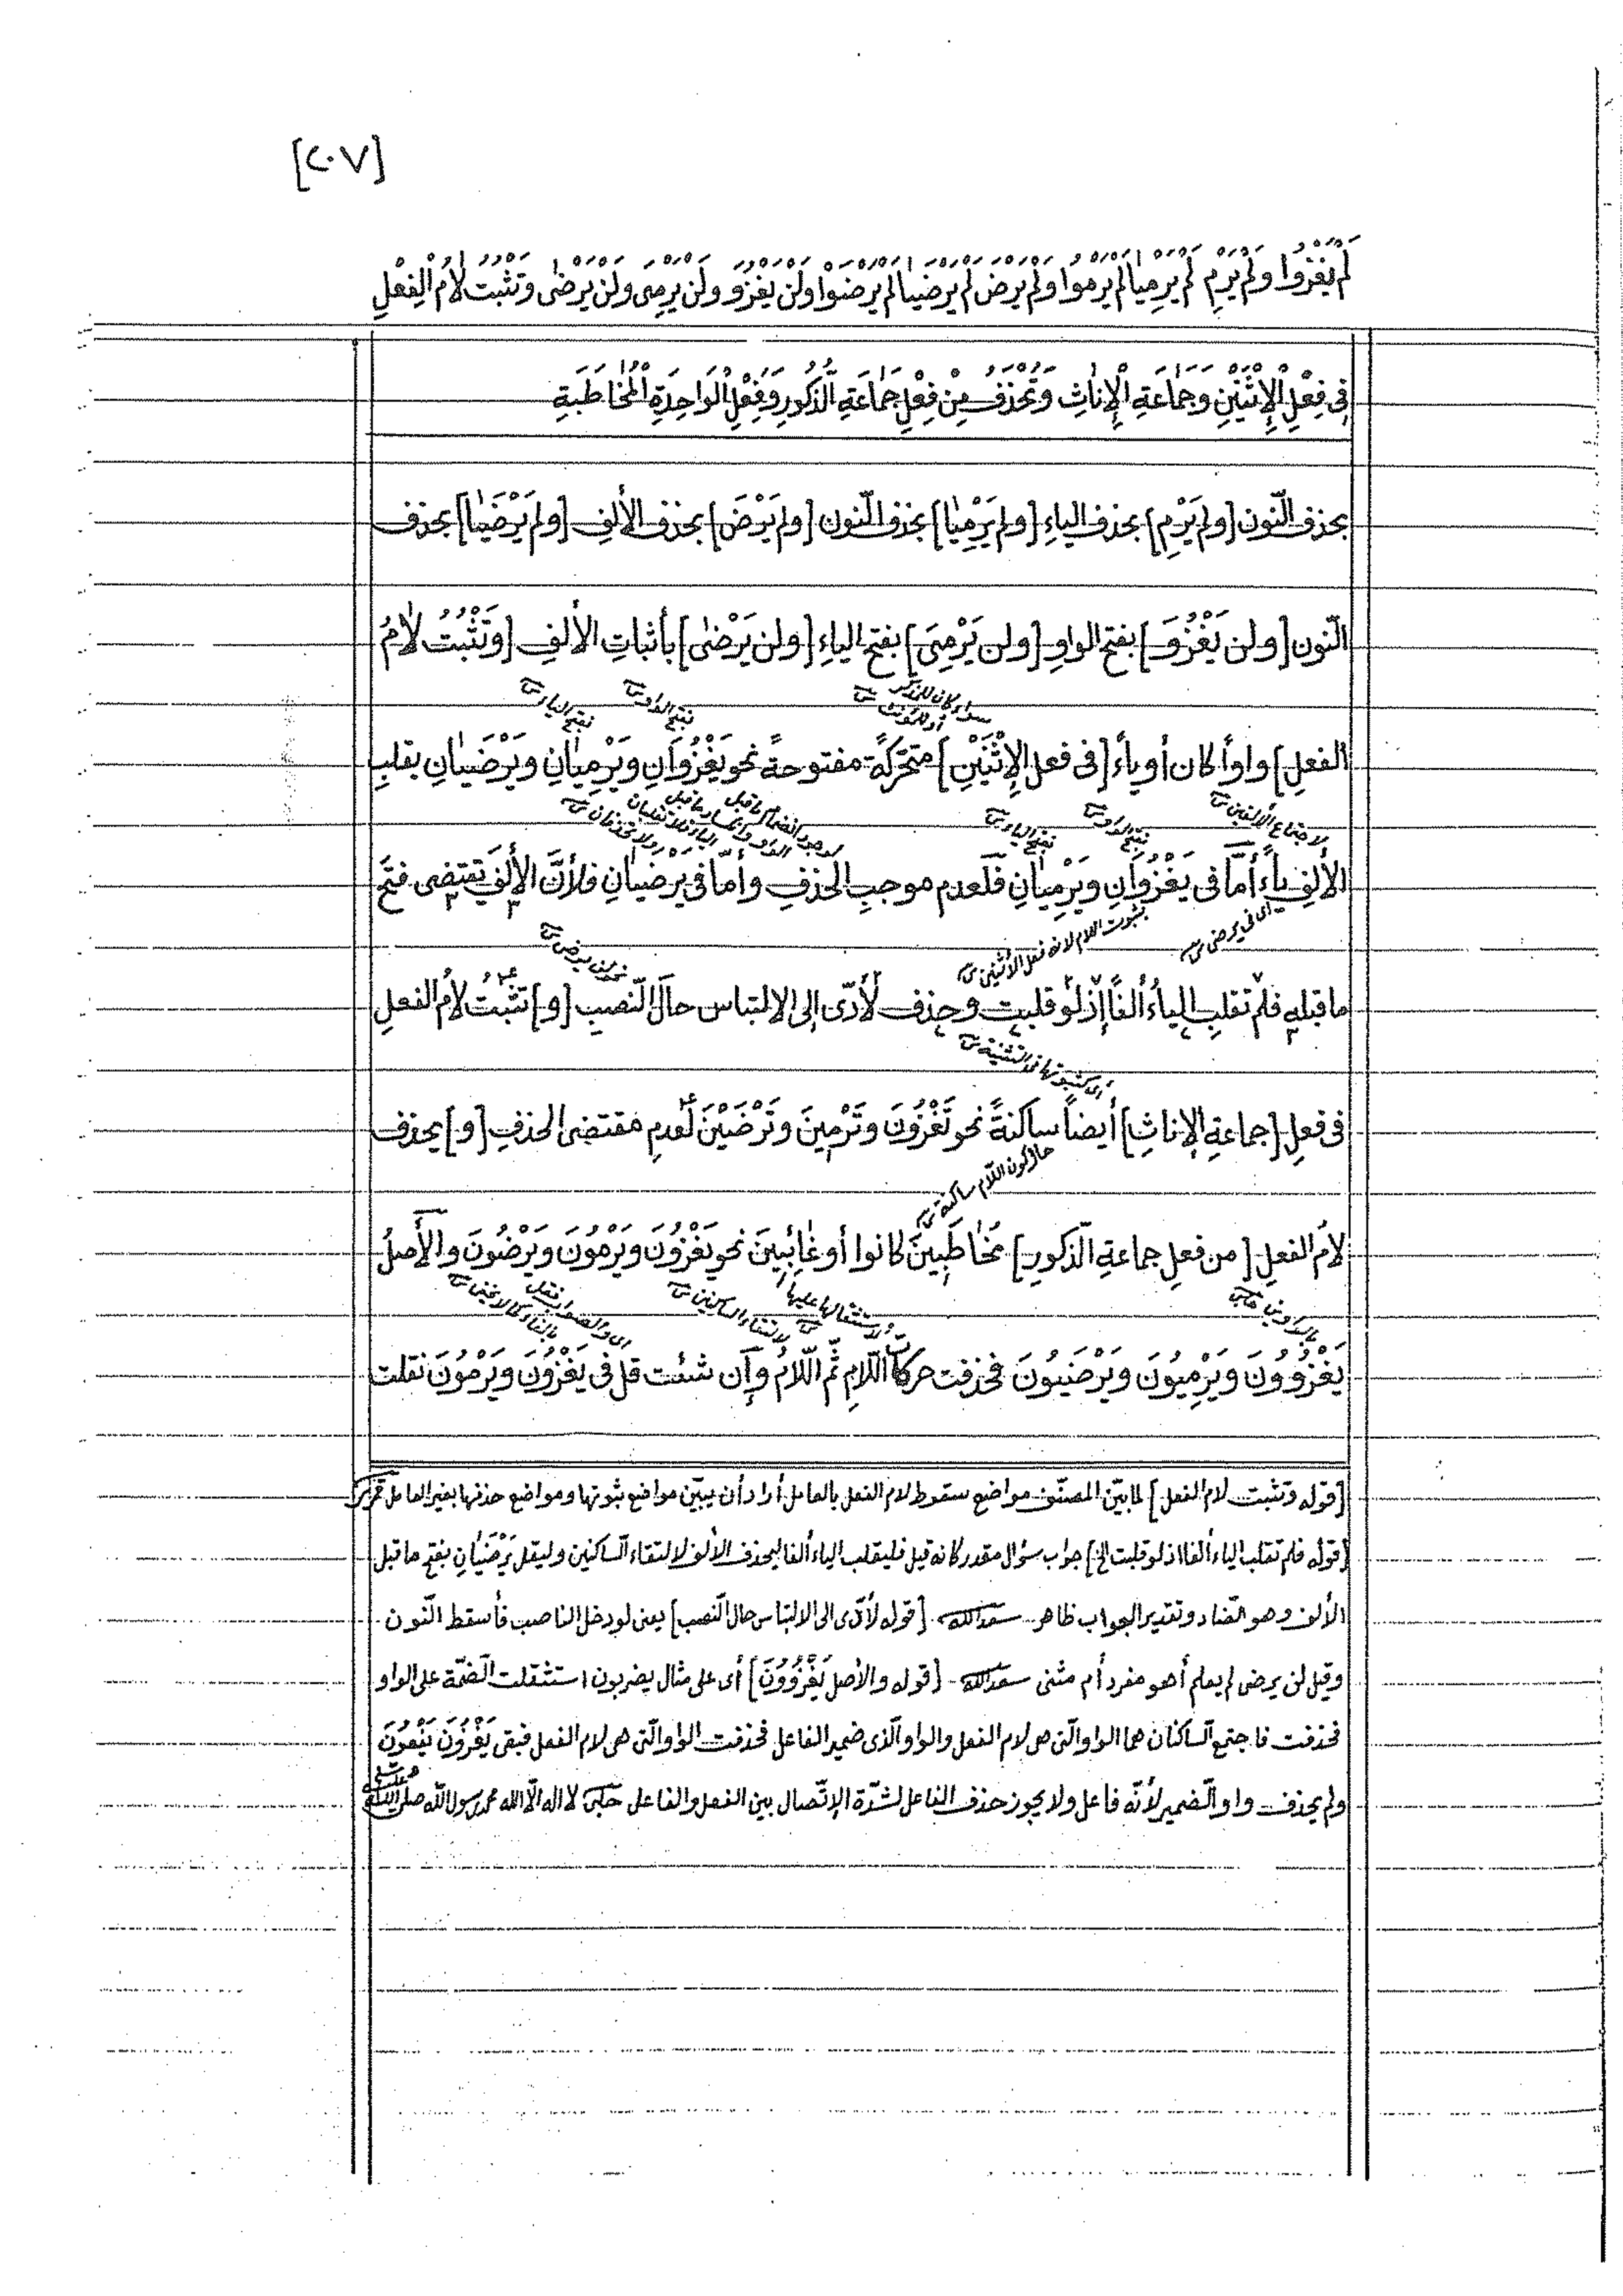 [٢٠٧]
لَمْ يَغْزُوا وَلَمْ يَرْمِ لَمْ يَرْمِيَا لَمْ يَرْمُوا وَلَمْ يَرْضَ لَمْ يَرْضَيَا لَمْ يَرْضَوْا وَلَنْ يَغْزُوَ وَلَنْ يَرْمِىَ وَلَنْ يَرْضٰى وَتَثْبُتُ لَامُ الْفِعْلِ
فِى فِعْلِ الْإِثْنَيْنِ وَجَمَاعَةِ الْإِنَاثِ وَتُحْذَفُ مِنْ فِعْلِ جَمَاعَةِ الذُّكُورِ وَفِعْلِ الْوَاحِدَةِ الْمُخَاطَبَةِ
بحذف النّون [ولم يَرْمِ] بحذف الياءِ [ولم يَرْمِيَا] بحذف النّون [ولم يَرْضَ] بحذف الألِفِ [ولم يَرْضَيَا] بحذف
النّون [ولن يَغْزُوَ] بفتح الواوِ [ولن يَرْمِىَ] بفتح الياءِ [ولن يَرْضٰى] بأثباتِ الألفِ [وتَثْبُتُ لَامُ
سواء كان للمذكر أو للمؤنث
بفتح الواو
بفتح الياء
الفعلِ] واواً كان أو ياءً [فى فعل الإِثْنَيْنِ] متحرّكةً مفتوحةً نحو يَغْزُوَانِ ويَرْمِيَانِ ويَرْضَيَانِ بقلبِ
لاجتماع الألفين
بفتح الواو
بفتح الياء
الألِفِ ياءً أمّا فى يَغْزُوَانِ ويَرْمِيَانِ فلعدم موجبِ الحذفِ وأمّا فى يَرْضَيَانِ فلأنَّ الألِفَ تقتضى فتحَ
اى فى يرضى
بثبوت اللام لانه فعل الأثنين
ما قبله فلم تقلبِ الياءُ ألفاً إذ لو قلبت وحذف لَأدّى إلى الالتباس حالَ النّصبِ [و] تثبُتُ لامُ الفعلِ
أى كثبوتها فى التثنية
فى فعلِ [جماعةِ الإناثِ] أيضاً ساكنةً نحو تَغْزُونَ وتَرْمِينَ وتَرْضَيْنَ لعدمِ مقتضى الحذفِ [و] يحذف
حال كون اللّام ساكنة
لامُ الفعلِ [من فعلِ جماعةِ الذّكورِ] مخَاطَبِينَ كانوا أو غَائِبِينَ نحو يَغْزُونَ ويَرْمُونَ ويَرْضُونَ والأصلُ
بالواوين
لاستثقالها عليها
لالتقاء الساكنين
يَغْزُوُونَ ويَرْمِيُونَ ويَرْضَيُونَ فحذفت حركاتُ اللّامِ ثمّ اللّامُ وإن شئت قل فى يَغْزُونَ ويَرْمُونَ نقلت
[قوله وتثبت لام الفعل] لما بيّن المصنّف مواضع سقوط لام الفعل بالعامل أراد أن يبيّن مواضع ثبوتها ومواضع حذفها بغير العامل
[قوله فلم تقلب الياء ألفا اذ لو قلبت الخ] جواب سؤال مقدر كانه قيل فليقلب الياء ألفا ليحذف الألف لالتقاء السّاكنين وليقل يَرْضَيَانِ بفتح ما قبل
الألف وهو الضّاد وتقدير الجواب ظاهر سعد الله. [قوله لأدّى الى الالتباس حال النّصب] يعنى لو دخل الناصب فأسقط النّون
وقيل لن يرضى لم يعلم أهو مفرد أم مثنى سعد الله - [قوله والأصل يَغْزُوُونَ] أى على مثال يضربون استثقلت الضّمّة على الواو
فحذفت فاجتمع السّاكنان هما الواو الّتى هى لام الفعل والواو الّذى ضمير الفاعل فحذفت الواو الّتى هى لام الفعل فبقى يَغْزُونَ يَفْعُونَ
ولم يحذف واو الضّمير لأنّه فاعل ولا يجوز حذف الفاعل لشدّة الإتّصال بين الفعل والفاعل لا اله الّا الله محمد رسول الله صلى الله عليه وسلم